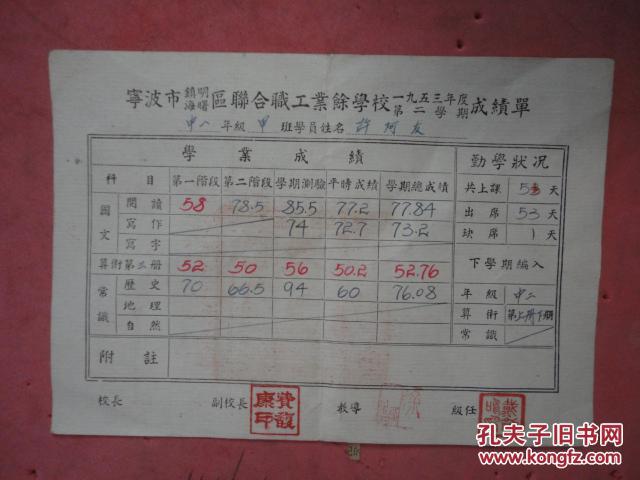 寧波市鎮海明曙區聯合職工業餘學校一九五三年度第二學期成績單
中八年級甲班學員姓名 許阿友
學業成績 勤學狀況
科目 第一階段 第二階段 學期測驗 平時成績 學期總成績 共上課 天
國文 閱讀 58 78.5 85.5 77.2 77.84 出席 53 天
寫作 74 72.7 73.2 缺席 1 天
寫字
算術第三册 52 50 56 50.2 52.76 下學期編入
常識 歷史 70 66.5 94 60 76.08 年級 中二
地理 算術
自然 常識
附註
校長 副校長 費馥康印 教導 級任
孔夫子旧书网
www.kongfz.com